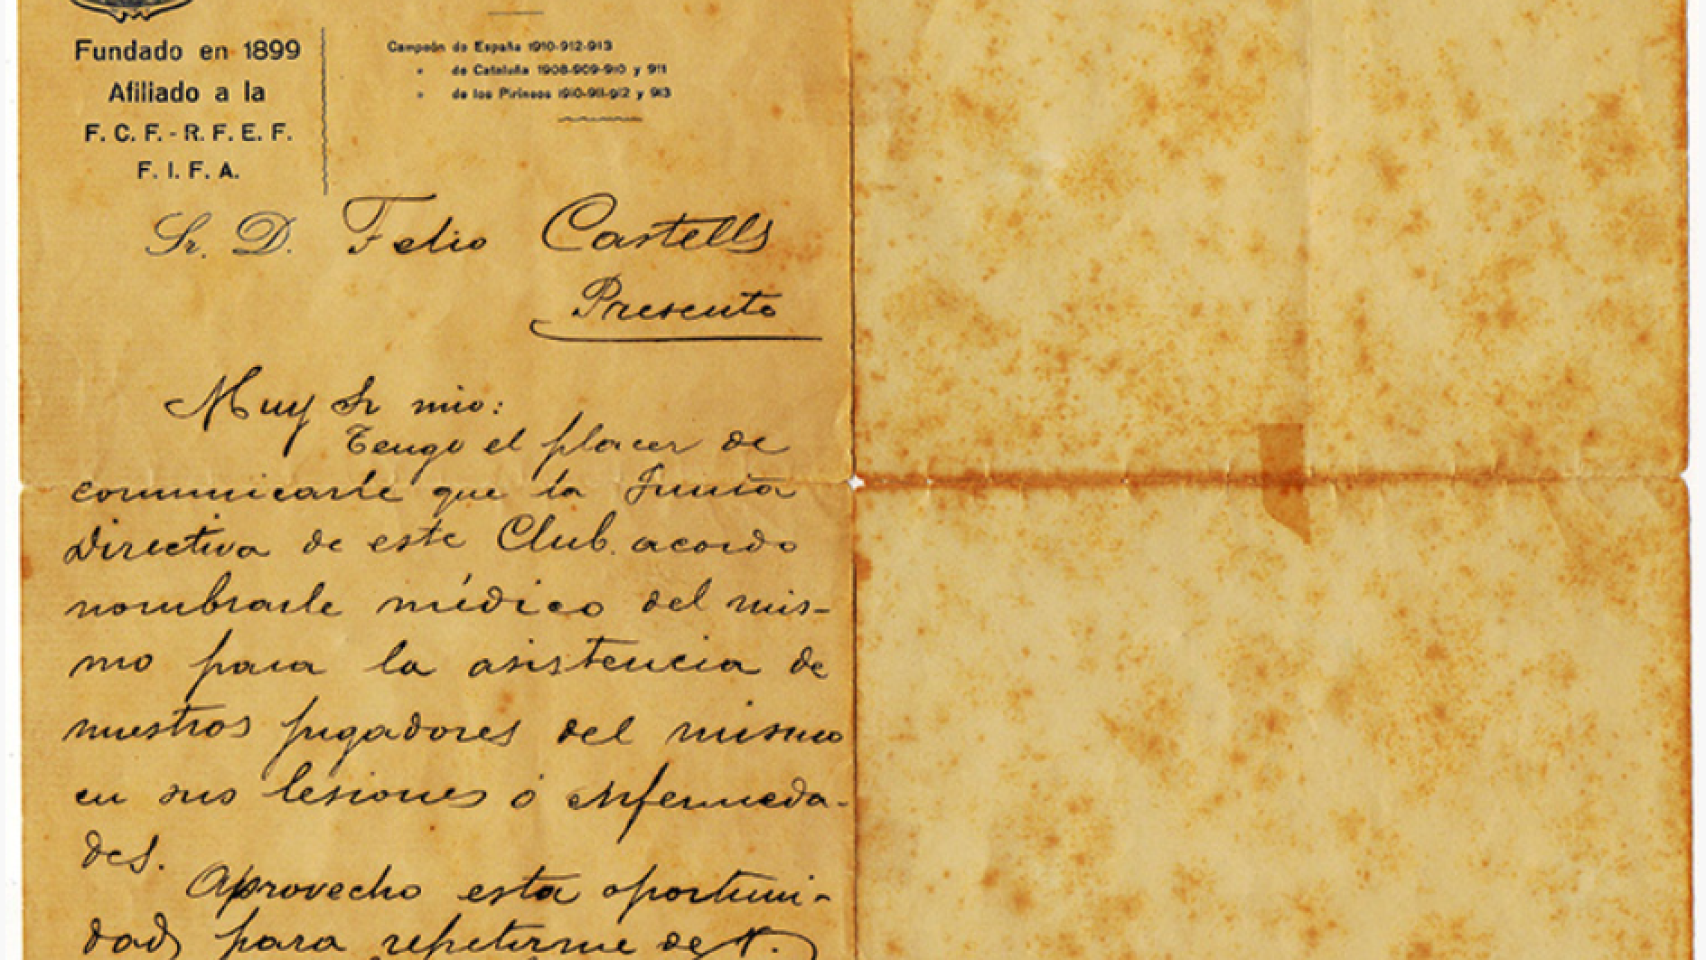 Fundado en 1899
Afiliado a la
F. C. F. - R. F. E. F.
F. I. F. A.
Campeón de España 1910-912-913
" de Cataluña 1908-909-910 y 911
" de los Pirineos 1910-911-912 y 913
Sr. D. Felio Castells
Presente
Muy Sr mio:
Tengo el placer de
comunicarle que la Junta
Directiva de este Club acordo
nombrarle médico del mis-
mo para la asistencia de
nuestros jugadores del mismo
en sus lesiones ó enfermeda-
des.
Aprovecho esta oportuni-
dad para repetirme de V.